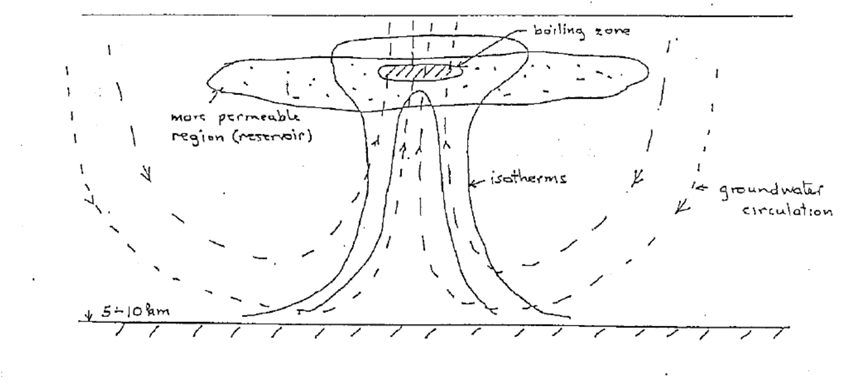 boiling zone
more permeable
region (reservoir)
isotherms
groundwater
circulation
5-10 km